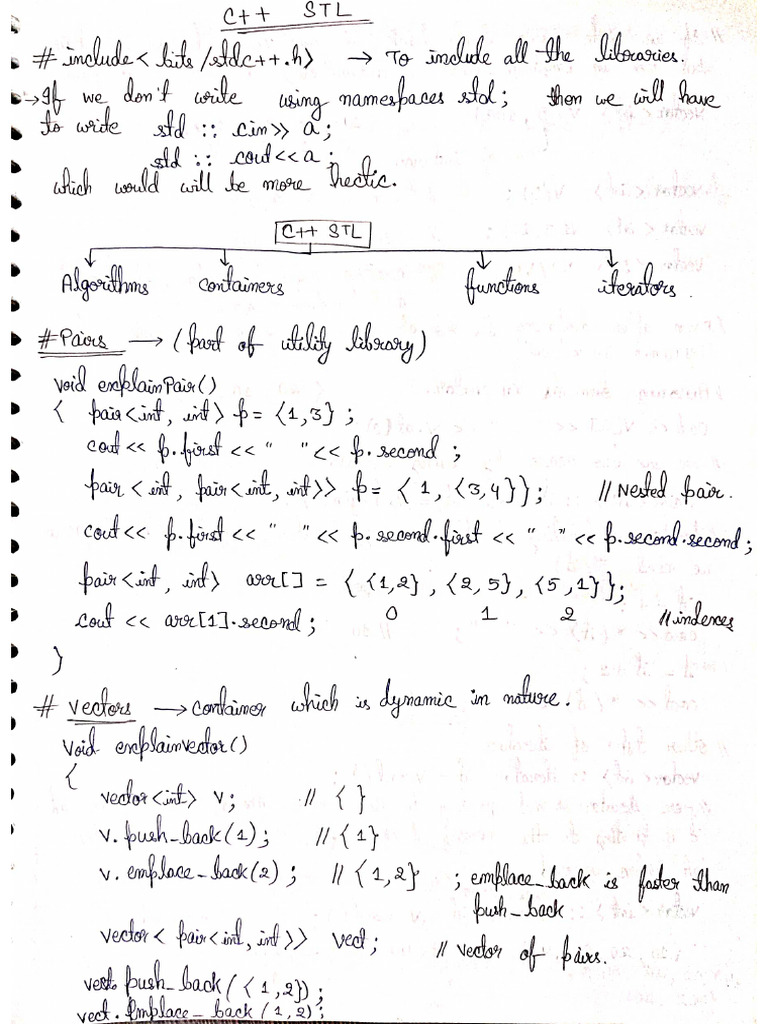 C++ STL
# include < bits /stdc++.h> → To include all the libraries.
→ If we don't write using namespaces std; then we will have
to write std :: cin>> a;
std :: cout<<a;
which would will be more thectic.
C++ STL
Algorithms containers functions iterators.
# Pairs → (part of utility library)
void explainPair()
{ pair<int, int> p = {1,3} ;
cout << p.first << " " << p.second ;
pair <int, pair<int, int>> p = { 1, {3,4}}; // Nested pair.
cout<< p.first << " " << p.second.first << " " << p.second.second;
pair<int, int> arr[] = { {1,2} , {2,5}, {5,1}};
cout << arr[1].second; 0 1 2 // indexes
}
# vectors → container which is dynamic in nature.
void explainvector()
{
vector<int> v; // { }
v. push_back(1); // {1}
v. emplace_back(2) ; // {1,2} ; emplace_back is faster than
push_back
vector< pair<int, int>> vect; // vector of pairs.
vect. push_back({1,2});
vect. Emplace_back(1,2);